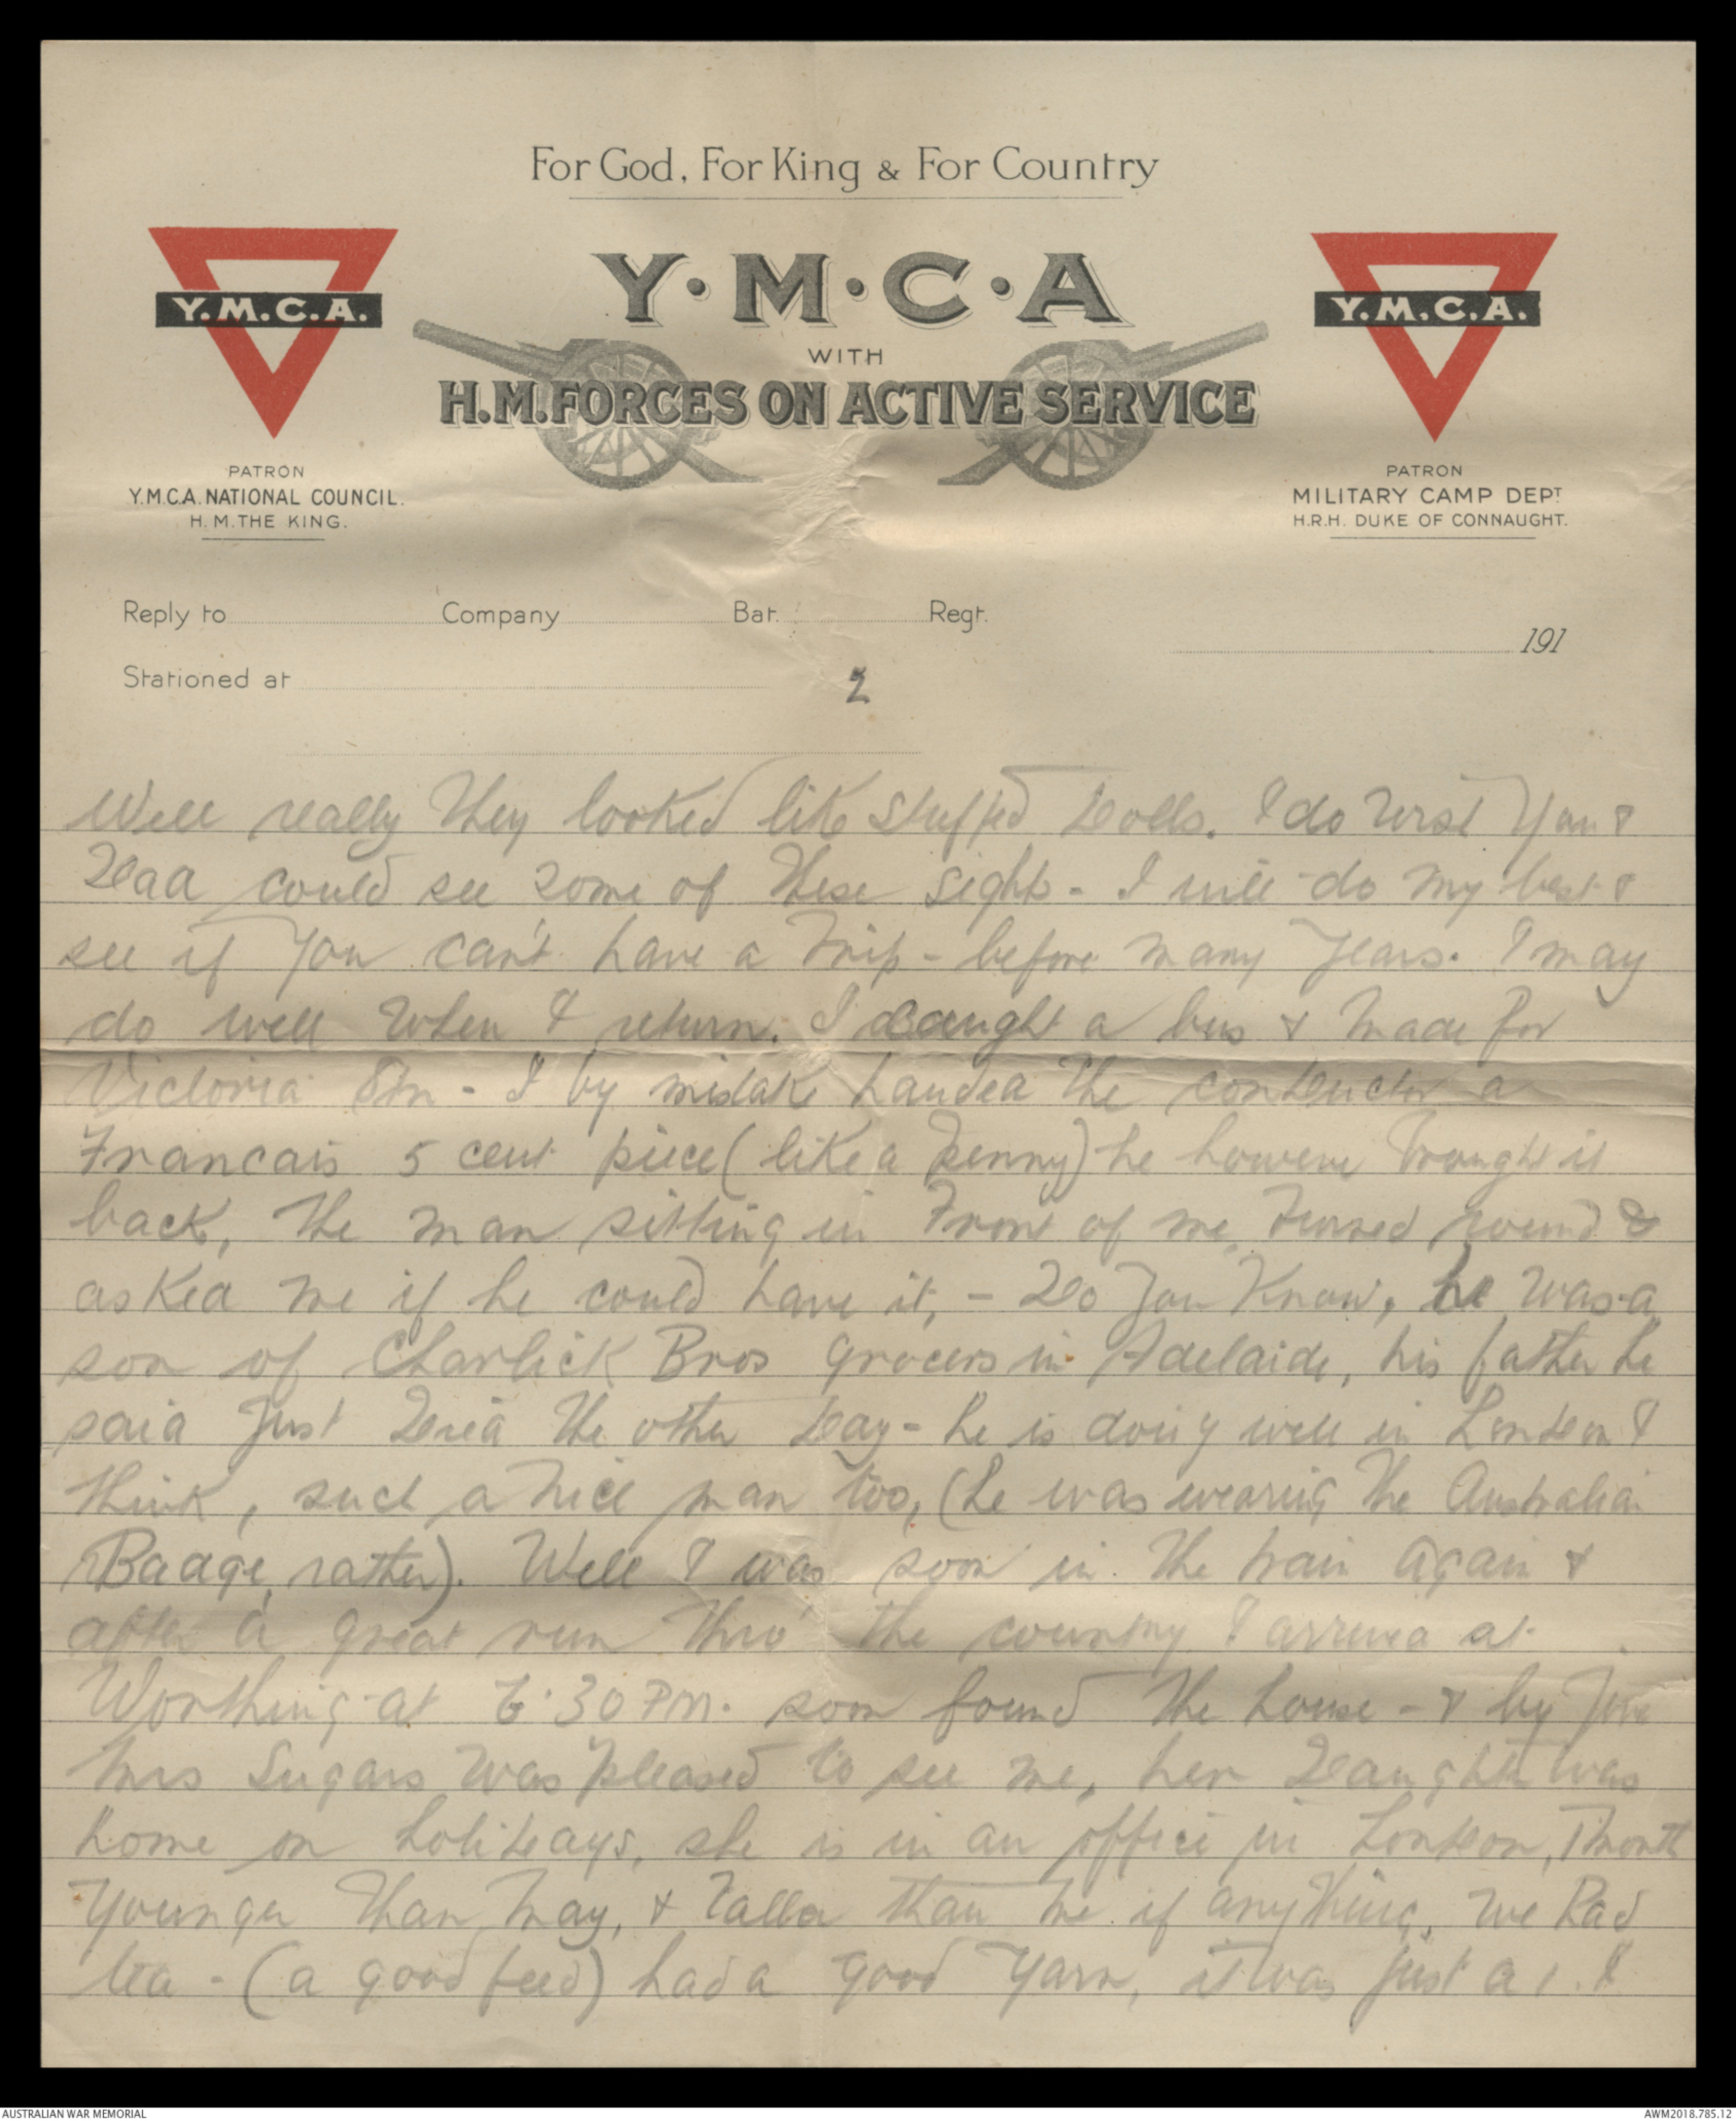 For God, For King & For Country
Y.M.C.A.
Y·M·C·A
WITH
H.M. FORCES ON ACTIVE SERVICE
Y.M.C.A.
PATRON
Y.M.C.A. NATIONAL COUNCIL.
H.M. THE KING.
PATRON
MILITARY CAMP DEPT
H.R.H. DUKE OF CONNAUGHT.
Reply to Company Bat. Regt.
191
Stationed at
2
Well really they looked like stuffed Dolls. I do wish you &
Dad could see some of these sights - I will do my best &
see if you can't have a trip - before many years. I may
do well when I return. I caught a bus & made for
Victoria Stn - I by mistake handed the conductor a
Francais 5 cent piece (like a penny) he however brought it
back, the man sitting in front of me turned round &
asked me if he could have it, - Do you know, he was a
son of Charlick Bros grocers in Adelaide, his father he
said just died the other day - he is doing well in London I
think, such a nice man too, (he was wearing the Australian
Badge, rather). Well I was soon in the train again &
after a great run thro' the country I arrived at
Worthing at 6.30 PM. soon found the house - & by Jove
Mrs Sugars was pleased to see me, her Daughter was
home on holidays, she is in an office in London, 1 month
younger than May, & taller than me if anything, we had
tea - (a good feed) had a good yarn, it was just a 1. I
AUSTRALIAN WAR MEMORIAL
AWM2018.785.12